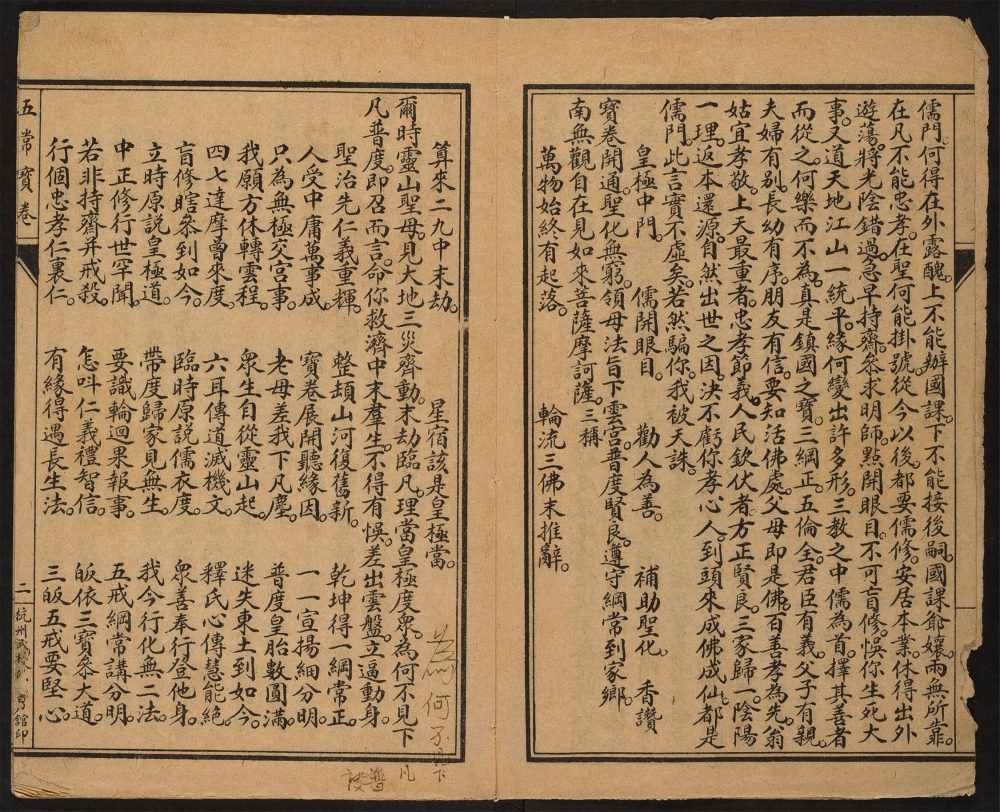 儒門。何得在外露醜。上不能辦國課。下不能接後嗣。國課爺孃兩無所靠。
在凡不能忠孝。在聖何能掛號。從今以後。都要儒修。安居本業。休得出外
遊蕩。將光陰錯過。急早持齋。叅求明師。點開眼目。不可盲修。悞你生死大
事。又道天地江山一統平。緣何變出許多形。三教之中儒為首。擇其善者
而從之。何樂而不為。真是鎮國之寶。三綱正。五倫全。君臣有義。父子有親。
夫婦有別。長幼有序。朋友有信。要知活佛處。父母即是佛。百善孝為先。翁
姑宜孝敬。上天最重者。忠孝節義。人民欽伏者。方正賢良。三家歸一。陰陽
一理。返本還源。自然出世之因。決不虧你孝心人。到頭來成佛成仙。都是
儒門。此言實不虛矣。若然騙你。我被天誅。
皇極中門。 儒開眼目。 勸人為善。 補助聖化。 香讚
寶卷開通。聖化無窮。領母法旨下雲宮。普度賢良。遵守綱常到家鄉。
南無觀自在見如來菩薩摩訶薩。三稱
萬物始終有起落。 輪流三佛末推辭。
算來二九中末劫。 星宿該是皇極當。
爾時靈山聖母。見大地三災齊動。末劫臨凡。理當皇極度衆。為何不見下
凡普度。即召而言。命你救濟中末羣生。不得有悞。差出雲盤。立逼動身。
聖治先仁義重輝。 整頓山河復舊新。 乾坤得一綱常正。
人受中庸萬事成。 寶卷展開聽緣因。 一一宣揚細分明。
只為無極交宮事。 老母差我下凡塵。 普度皇胎數圓滿。
我願方休轉雲程。 衆生自從靈山起。 迷失東土到如今。
四七達摩曾來度。 六耳傳道滅機文。 釋氏心傳慧能絕。
盲修瞎叅到如今。 臨時原說儒衣度。 衆善奉行登他身。
立時原說皇極道。 帶度歸家見無生。 我今行化無二法。
中正修行世罕聞。 要識輪迴果報事。 五戒綱常講分明。
若非持齋并戒殺。 怎呌仁義禮智信。 皈依三寶叅大道。
行個忠孝仁裏仁。 有緣得遇長生法。 三皈五戒要堅心。
五常寶卷
二
杭州武林印書館印
為何不見下
凡
普
度